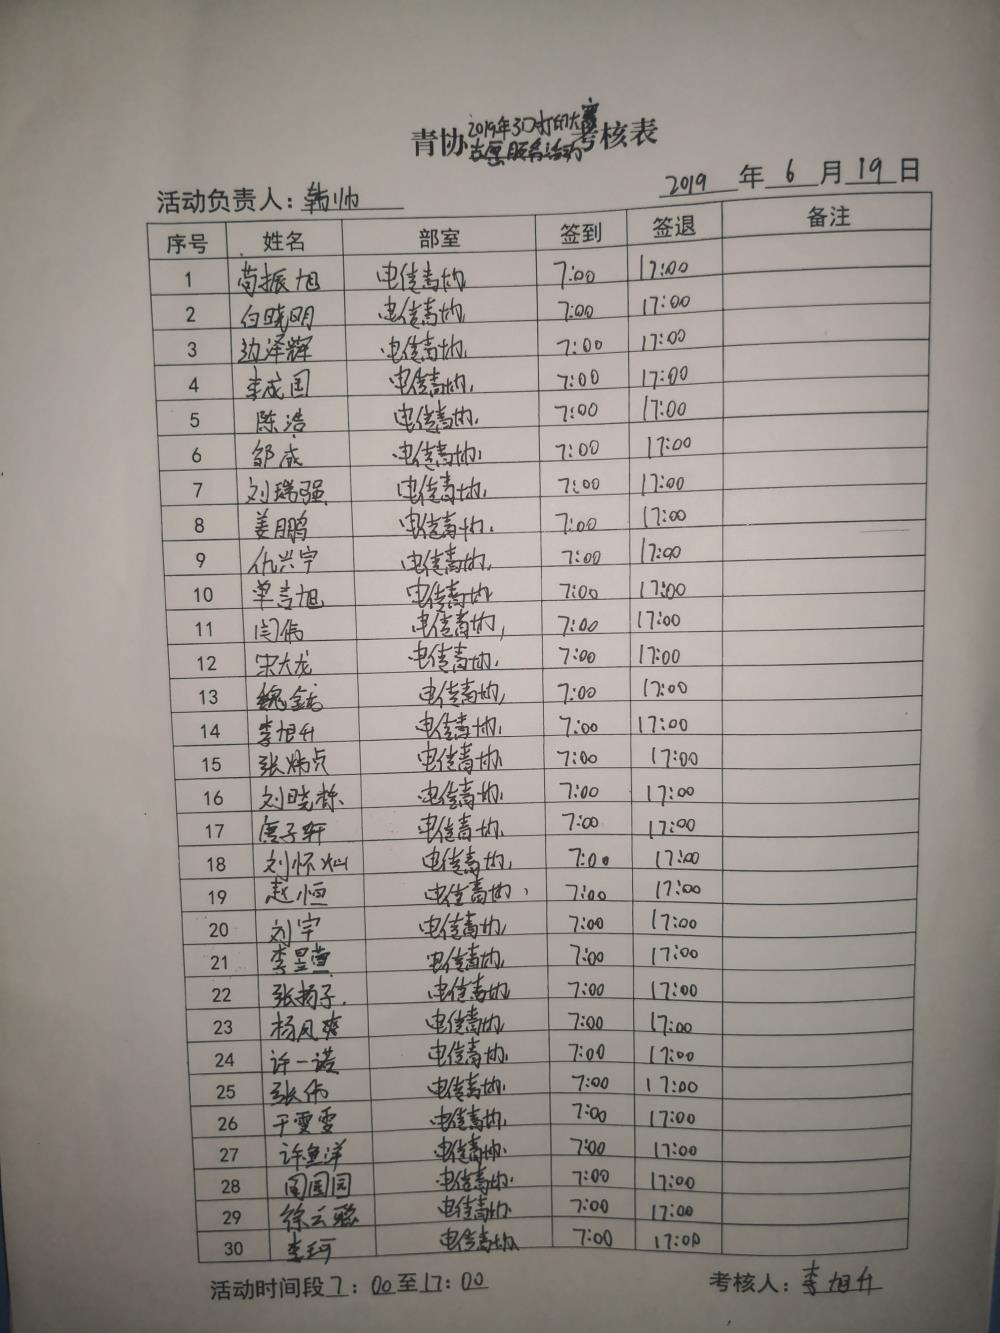 青协2019年3D打印大赛考核表
志愿服务活动
活动负责人：韩帅 2019年6月19日
序号 姓名 部室 签到 签退 备注
1 苟振旭 电信青协 7:00 17:00
2 白晓明 电信青协 7:00 17:00
3 边泽辉 电信青协 7:00 17:00
4 李成国 电信青协 7:00 17:00
5 陈浩 电信青协 7:00 17:00
6 邹成 电信青协 7:00 17:00
7 刘瑞强 电信青协 7:00 17:00
8 姜鹏 电信青协 7:00 17:00
9 仇兴宇 电信青协 7:00 17:00
10 单吉旭 电信青协 7:00 17:00
11 闫伟 电信青协 7:00 17:00
12 宋大龙 电信青协 7:00 17:00
13 电信青协 7:00 17:00
14 李旭升 电信青协 7:00 17:00
15 张炜贞 电信青协 7:00 17:00
16 刘晓栋 电信青协 7:00 17:00
17 唐子轩 电信青协 7:00 17:00
18 刘怀灿 电信青协 7:00 17:00
19 赵恒 电信青协 7:00 17:00
20 刘宇 电信青协 7:00 17:00
21 李昱萱 电信青协 7:00 17:00
22 张扬子 电信青协 7:00 17:00
23 杨风爽 电信青协 7:00 17:00
24 许一诺 电信青协 7:00 17:00
25 张伟 电信青协 7:00 17:00
26 于雯雯 电信青协 7:00 17:00
27 许鱼洋 电信青协 7:00 17:00
28 电信青协 7:00 17:00
29 徐云聪 电信青协 7:00 17:00
30 李珂 电信青协 7:00 17:00
活动时间段7：00至17：00 考核人：李旭升